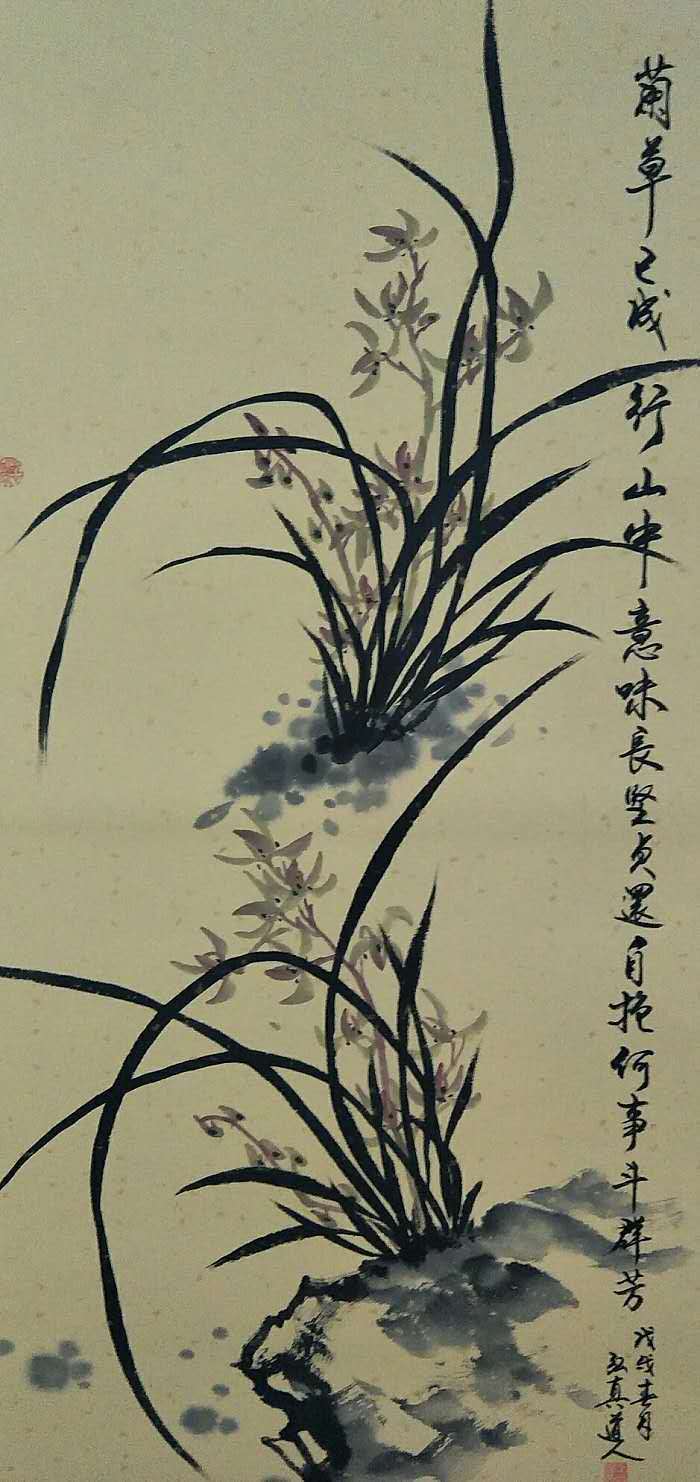 蘭草已成行山中意味長堅贞還自抱何事斗群芳
戊戌春月
真道人